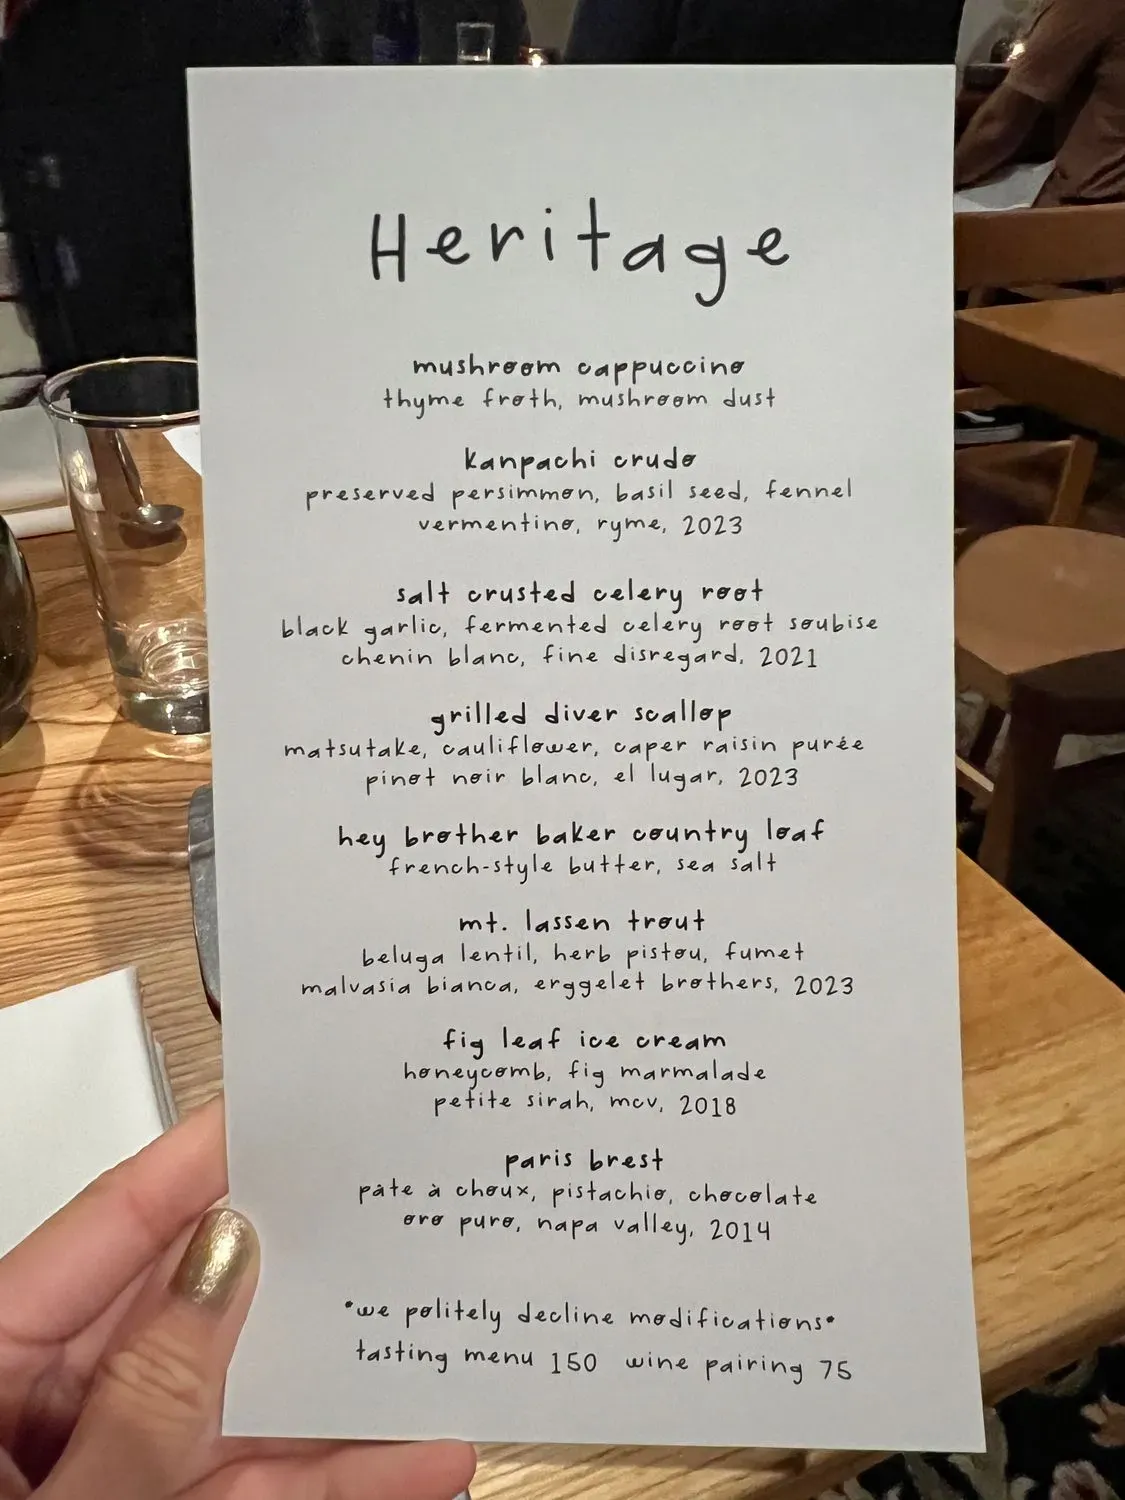 Heritage
mushroom cappuccino
thyme froth, mushroom dust
kanpachi crudo
preserved persimmon, basil seed, fennel
vermentino, ryme, 2023
salt crusted celery root
black garlic, fermented celery root soubise
chenin blanc, fine disregard, 2021
grilled diver scallop
matsutake, cauliflower, caper raisin purée
pinot noir blanc, el lugar, 2023
hey brother baker country loaf
french-style butter, sea salt
mt. lassen trout
beluga lentil, herb pistou, fumet
malvasia bianca, erggelet brothers, 2023
fig leaf ice cream
honeycomb, fig marmalade
petite sirah, mcv, 2018
paris brest
pâte à choux, pistachio, chocolate
oro puro, napa valley, 2014
*we politely decline modifications*
tasting menu 150 wine pairing 75